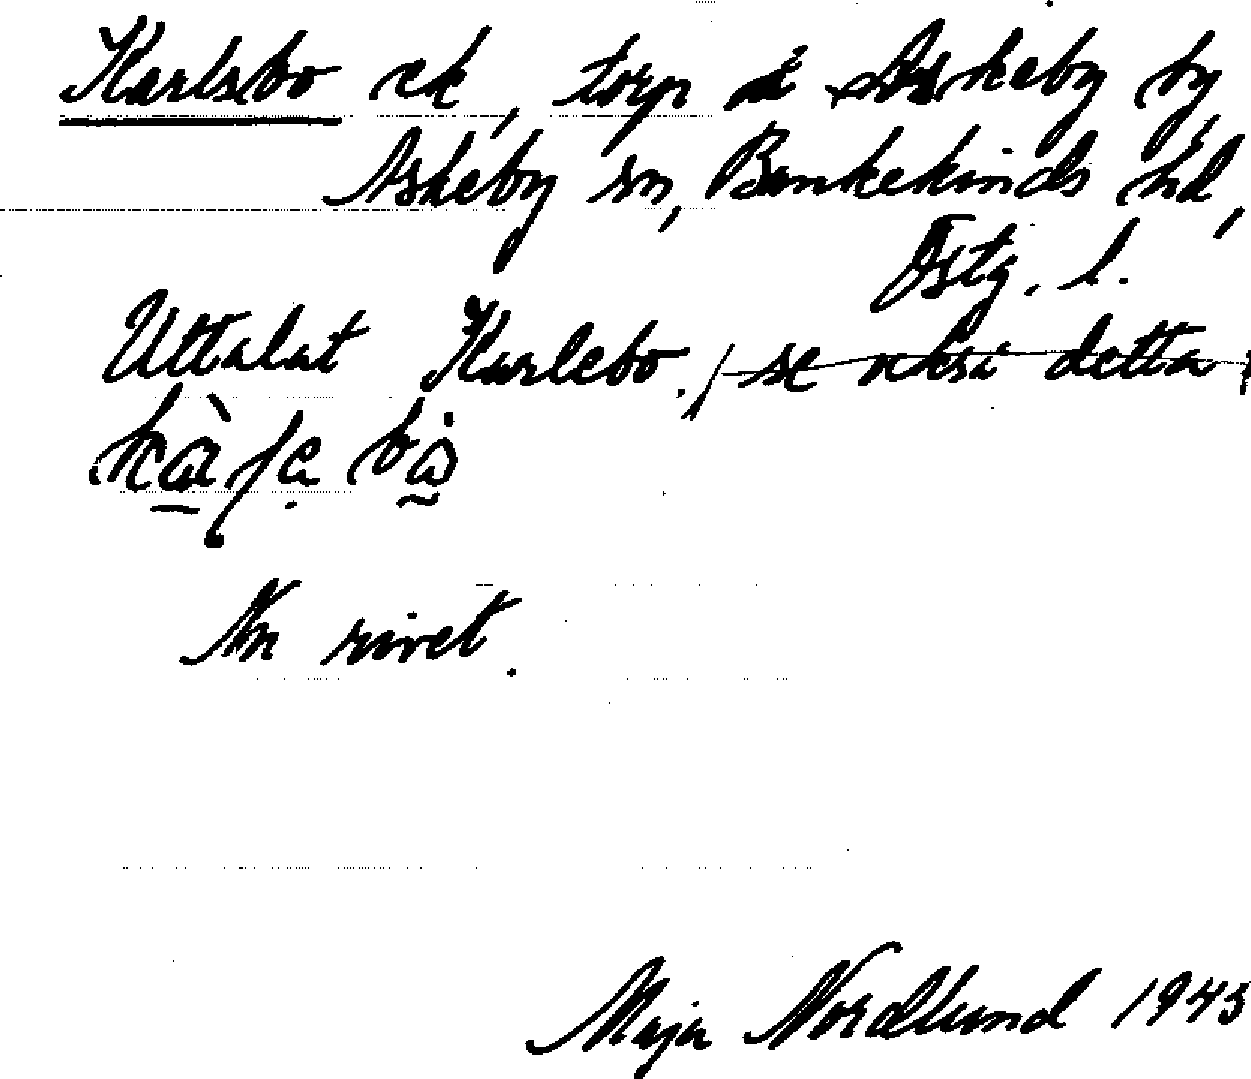 Karlsbo ck, torp å Askeby by,
Askeby sn, Bankekinds hd,
Östg. l.
Uttalat Karlebo. se också detta
Nu rivet.
Maja Nordlund 1943